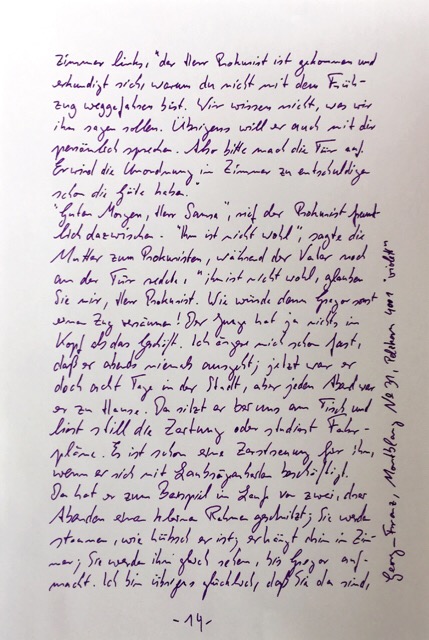 Zimmer links, "der Herr Prokurist ist gekommen und
erkundigt sich, warum du nicht mit dem Früh-
zug weggefahren bist. Wir wissen nicht, was wir
ihm sagen sollen. Übrigens will er auch mit dir
persönlich sprechen. Also bitte mach die Tür auf.
Er wird die Unordnung im Zimmer zu entschuldigen
schon die Güte haben."
"Guten Morgen, Herr Samsa", rief der Prokurist freund
lich dazwischen. "Ihm ist nicht wohl", sagte die
Mutter zum Prokuristen, während der Vater noch
an der Tür redete, "ihm ist nicht wohl, glauben
Sie mir, Herr Prokurist. Wie würde denn Gregor sonst
einen Zug versäumen! Der Junge hat ja nichts im
Kopf als das Geschäft. Ich ärgere mich schon fast,
daß er abends niemals ausgeht; jetzt war er
doch acht Tage in der Stadt, aber jeden Abend war
er zu Hause. Da sitzt er bei uns am Tisch und
liest still die Zeitung oder studiert Fahr-
pläne. Es ist schon eine Zerstreuung für ihn,
wenn er sich mit Laubsägearbeiten beschäftigt.
Da hat er zum Beispiel im Laufe von zwei, drei
Abenden einen kleinen Rahmen geschnitzt; Sie werden
staunen, wie hübsch er ist; er hängt drin im Zim-
mer; Sie werden ihn gleich sehen, bis Gregor auf-
macht. Ich bin übrigens glücklich, daß Sie da sind,
-14-
Montblanc No 31, Pelikan 4001 "violett"